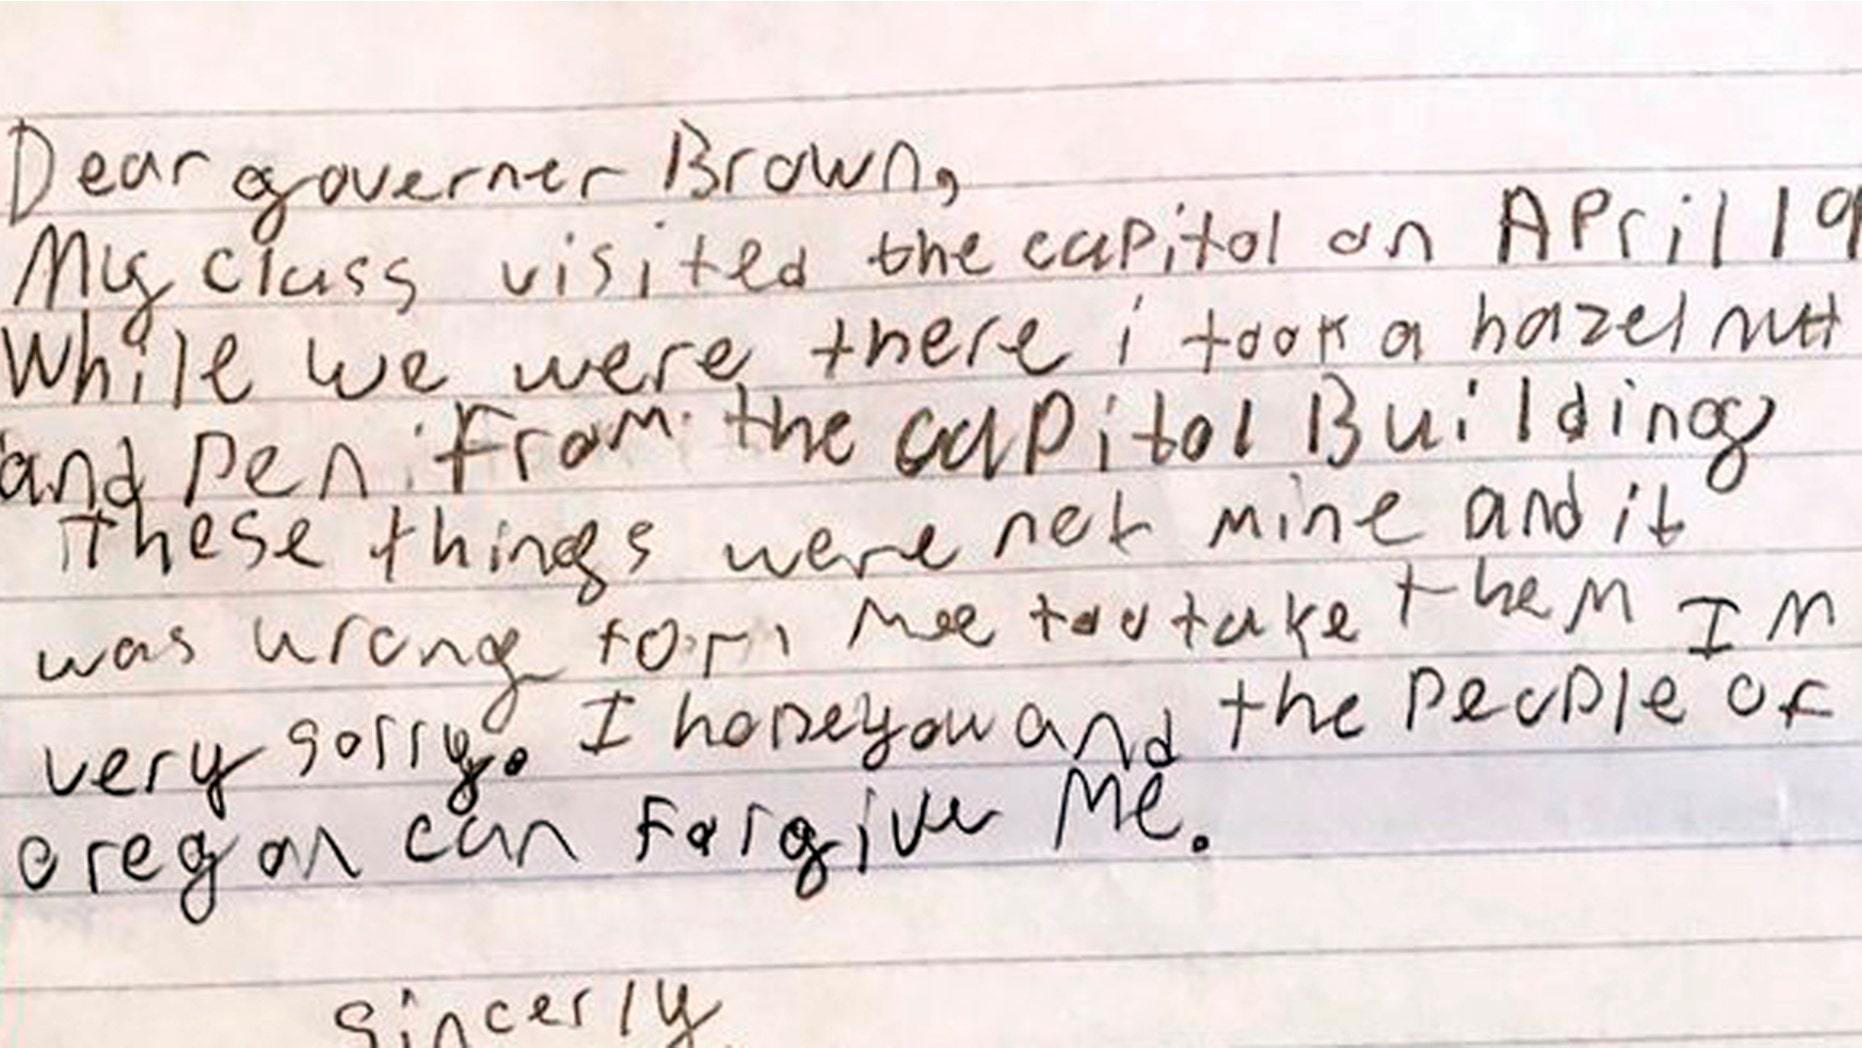 Dear governer Brown,
My class visited the capitol on April 19
While we were there i took a hazel nut
and pen from the capitol Building
these things were not mine and it
was wrong for me too take them Im
very sorry. I hope you and the people of
oregon can forgive me.
Sincerly